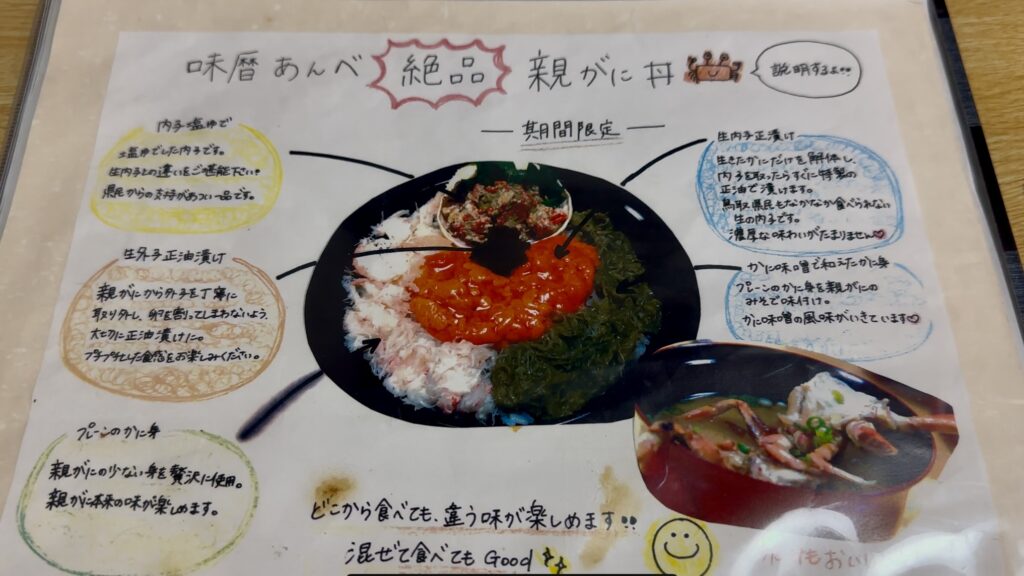 味暦あんべ 絶品 親がに丼
説明するよ!!
期間限定
内子塩ゆで
塩ゆでした内子です。
生内子との違いをご堪能下さい!
県民からの支持があつい一品です。
生外子正油漬け
親がにから外子を丁寧に
取り外し、卵を割ってしまわないよう
大切に正油漬けに。
プチプチとした食感をお楽しみください。
プレーンのかに身
親がにの少ない身を贅沢に使用。
親がに本来の味が楽しめます。
生内子正漬け
生きたかにだけを解体し、
内子を取ったらすぐに特製の
正油で漬けます。
鳥取県民もなかなか食べられない
生の内子です。
濃厚な味わいがたまりません♡
かに味噌で和えたかに身
プレーンのかに身を親がにの
みそで味付け。
かに味噌の風味がいきています♡
どこから食べても、違う味が楽しめます!!
混ぜて食べても Good
もおい